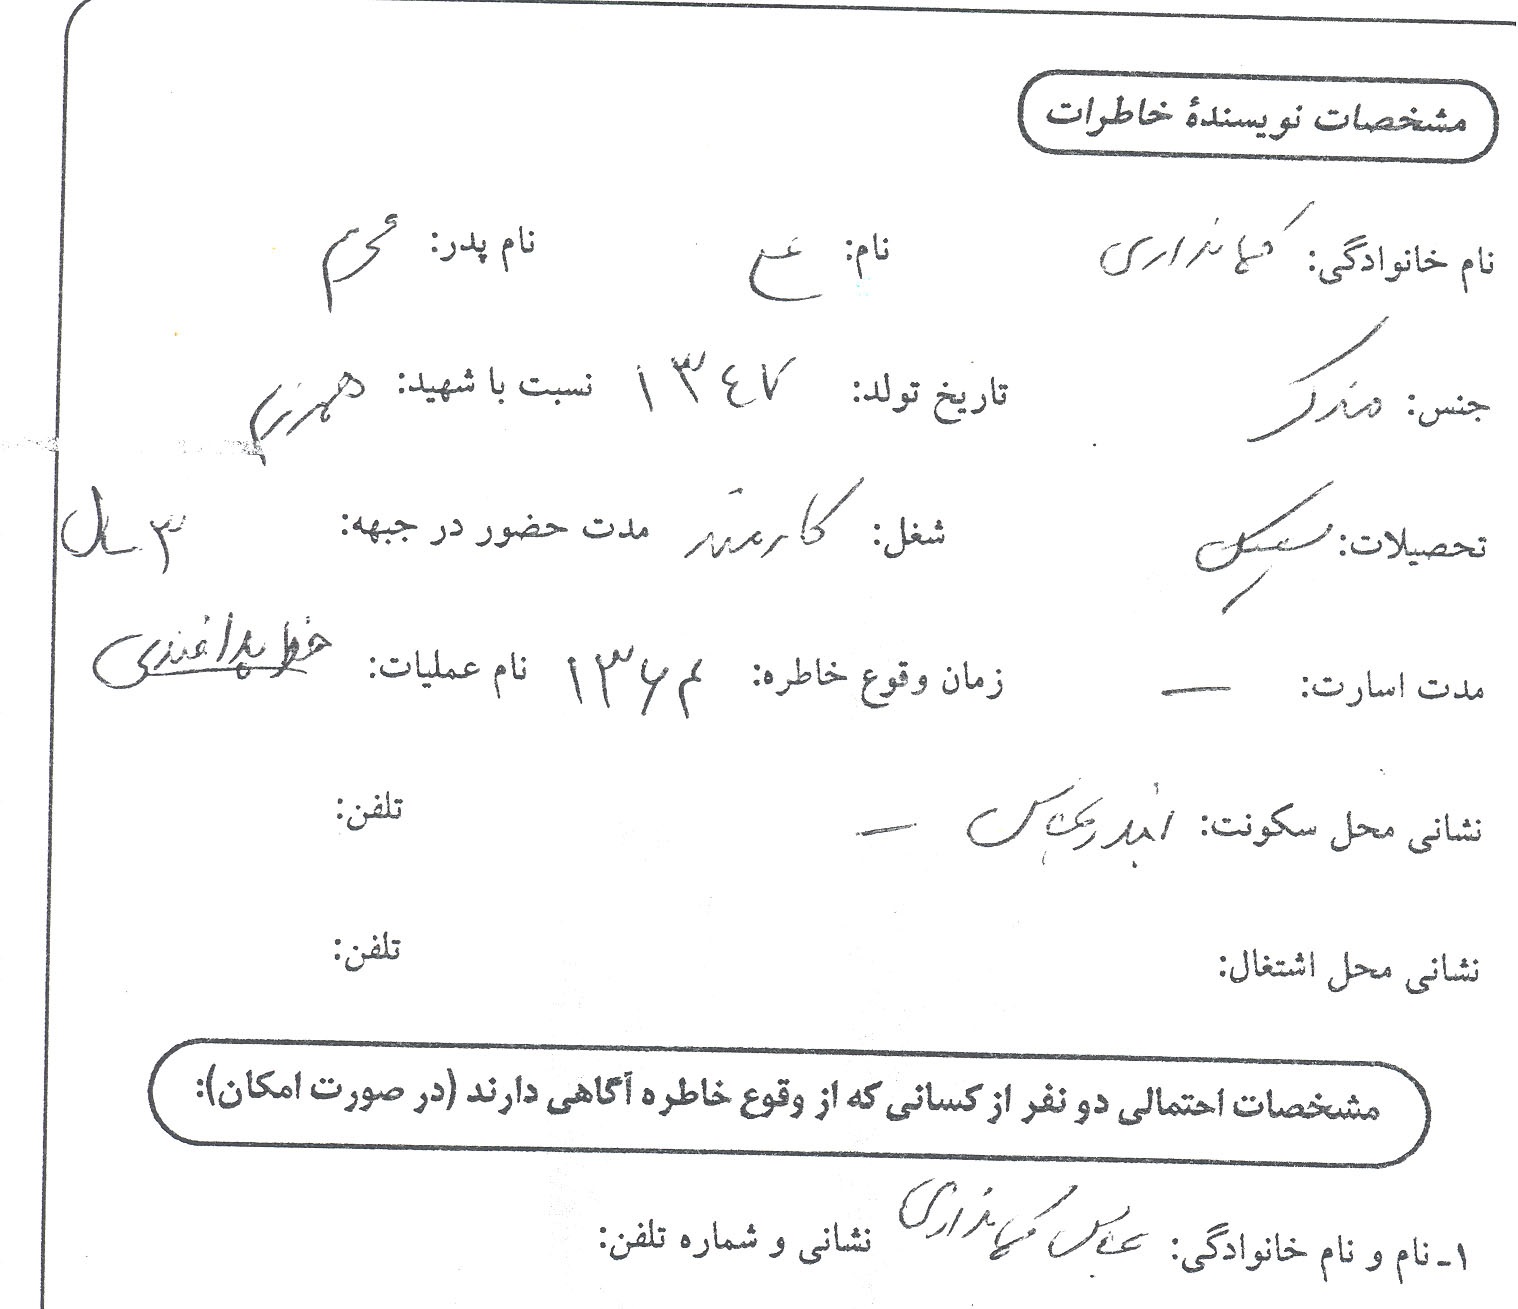 مشخصات نویسندهٔ خاطرات
نام خانوادگی: نام: نام پدر: محرم
جنس: تاریخ تولد: ۱۳٤۷ نسبت با شهید: همرزم
تحصیلات: سیکل شغل: کارمند مدت حضور در جبهه: ۳ سال
مدت اسارت: — زمان وقوع خاطره: ۱۳۶۴ نام عملیات: خط پدافندی
نشانی محل سکونت: — تلفن:
نشانی محل اشتغال: تلفن:
مشخصات احتمالی دو نفر از کسانی که از وقوع خاطره آگاهی دارند (در صورت امکان):
۱ـ نام و نام خانوادگی: عباس نشانی و شماره تلفن: